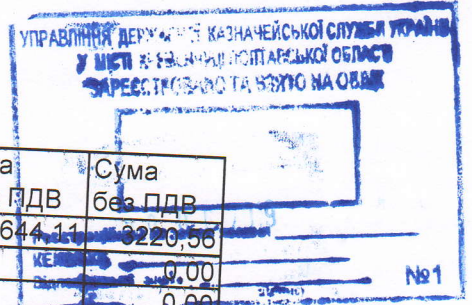 УПРАВЛІННЯ ДЕРЖАВНОЇ КАЗНАЧЕЙСЬКОЇ СЛУЖБИ УКРАЇНИ
У МІСТІ ПОЛТАВСЬКОЇ ОБЛАСТІ
ЗАРЕЄСТРОВАНО ТА ВЗЯТО НА ОБЛІК
а Сума
ПДВ без ПДВ
644,11 3220,56
0,00
№1
0,00